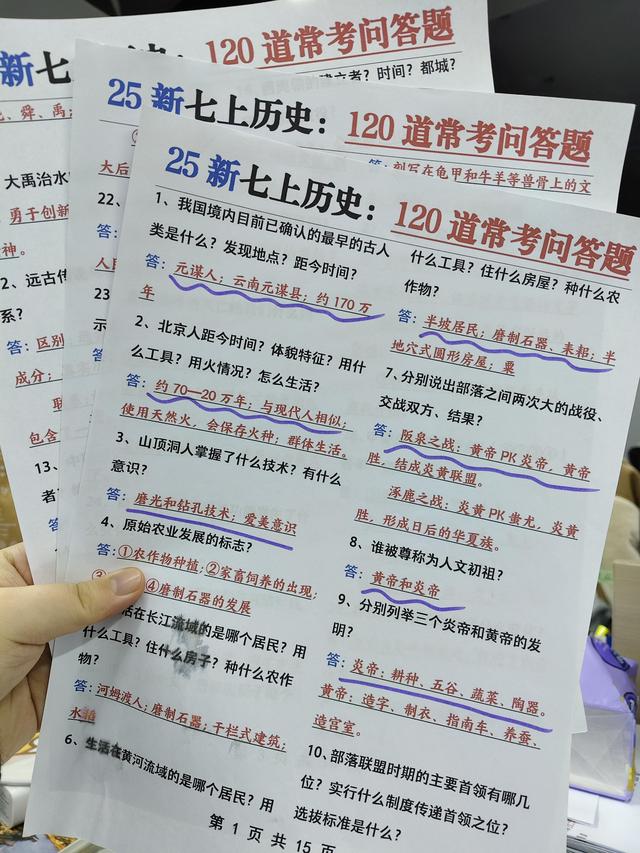 120道常考问答题
新七
建立者？时间？都城？
舜、禹；
大禹治水
勇于创新
神。
远古传
系？
答：区别
成分；
包含
13、
者
答
25新七上历史：120道常考问答题
答：刻写在龟甲和牛羊等兽骨上的文
大后
22、
答：
人民
23
示
答
25新七上历史：120道常考问答题
1、我国境内目前已确认的最早的古人
类是什么？发现地点？距今时间？
答：元谋人；云南元谋县；约170万
年
2、北京人距今时间？体貌特征？用什
么工具？用火情况？怎么生活？
答：约70—20万年；与现代人相似；
使用天然火，会保存火种；群体生活。
3、山顶洞人掌握了什么技术？有什么
意识？
答：磨光和钻孔技术；爱美意识
4、原始农业发展的标志？
答：①农作物种植；②家畜饲养的出现；
④磨制石器的发展
活在长江流域的是哪个居民？用
什么工具？住什么房子？种什么农作
物？
答：河姆渡人；磨制石器；干栏式建筑；
水稻
6、生活在黄河流域的是哪个居民？用
什么工具？住什么房屋？种什么农
作物？
答：半坡居民；磨制石器、耒耜；半
地穴式圆形房屋；粟
7、分别说出部落之间两次大的战役、
交战双方、结果？
答：阪泉之战：黄帝PK炎帝，黄帝
胜，结成炎黄联盟。
涿鹿之战：炎黄PK蚩尤，炎黄
胜，形成日后的华夏族。
8、谁被尊称为人文初祖？
答：黄帝和炎帝
9、分别列举三个炎帝和黄帝的发
明？
答：炎帝：耕种、五谷、蔬菜、陶器。
黄帝：造字、制衣、指南车、养蚕、
造宫室。
10、部落联盟时期的主要首领有哪几
位？实行什么制度传递首领之位？
选拔标准是什么？
第 1 页 共 15 页